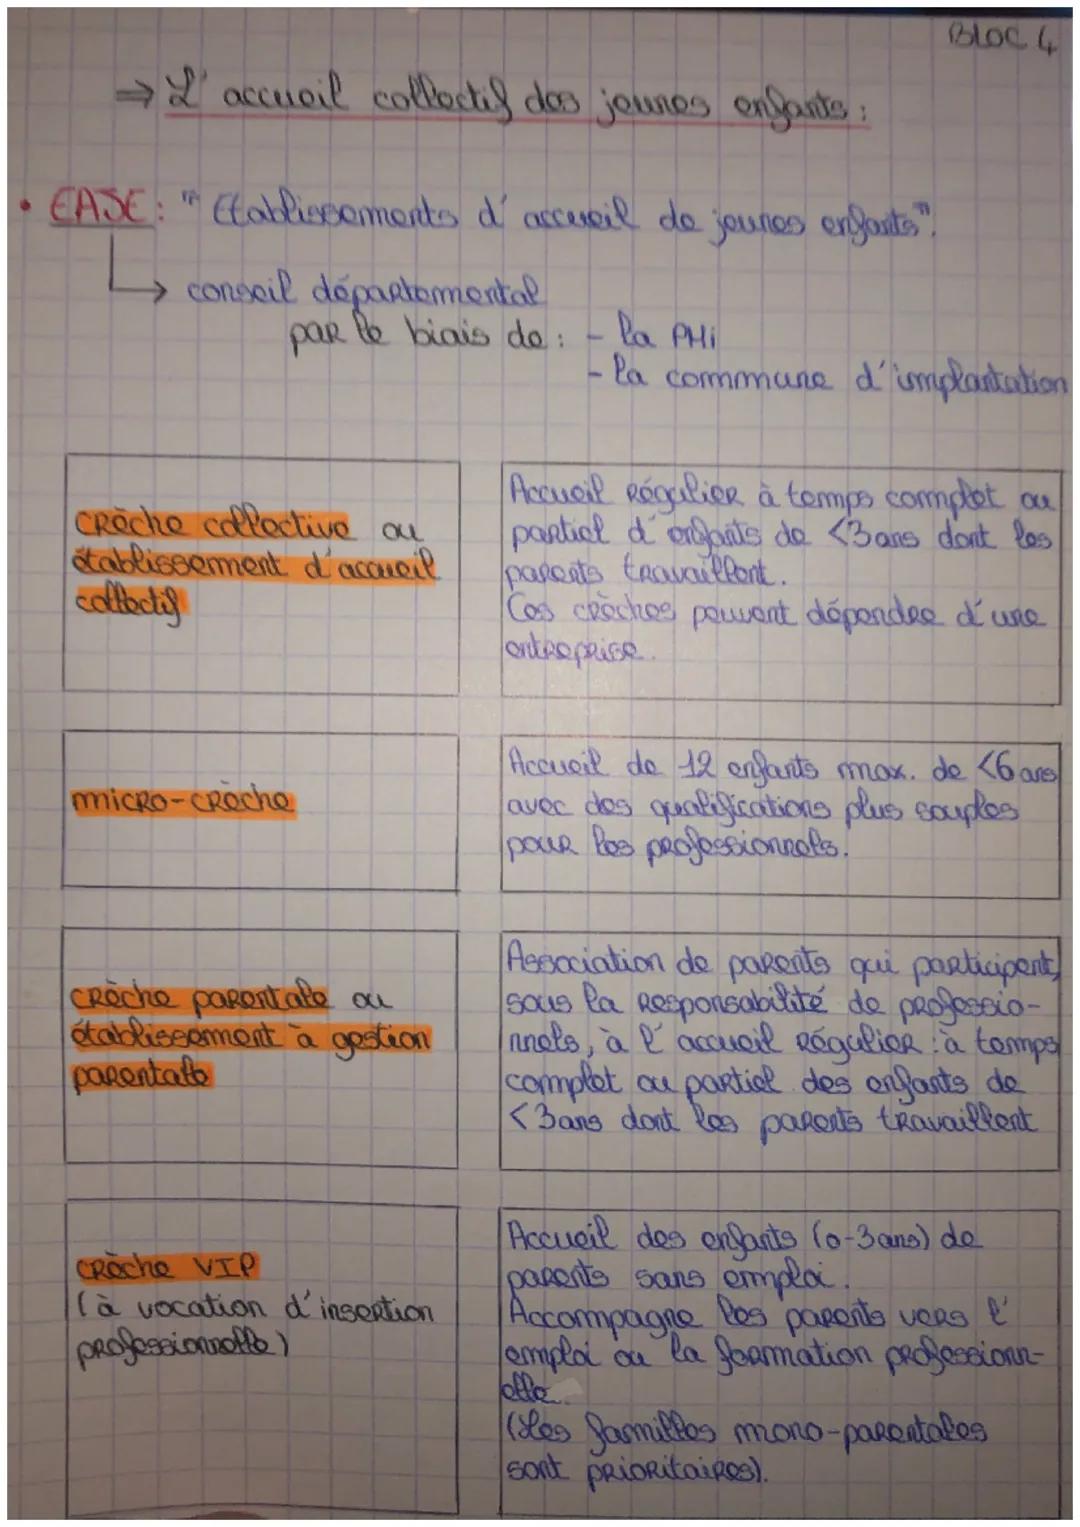 BLOC 4
⇒ L'accueil collectif des jeunes enfants :
• EAJE : "Etablissements d'accueil de jeunes enfants".
↳ conseil départemental
par le biais de : - la PMi
- la commune d'implantation
crèche collective ou
établissement d'accueil
collectif
Accueil régulier à temps complet ou
partiel d'enfants de <3ans dont les
parents travaillent.
Ces crèches peuvent dépendre d'une
entreprise.
micro-crèche
Accueil de 12 enfants max. de <6 ans
avec des qualifications plus souples
pour les professionnels.
crèche parentale ou
établissement à gestion
parentale
Association de parents qui participent,
sous la responsabilité de professio-
nnels, à l'accueil régulier : à temps
complet ou partiel des enfants de
<3ans dont les parents travaillent
crèche VIP
(à vocation d'insertion
professionnelle)
Accueil des enfants (0-3ans) de
parents sans emploi.
Accompagne les parents vers l'
emploi ou la formation professionn-
elle.
(Les familles mono-parentales
sont prioritaires).